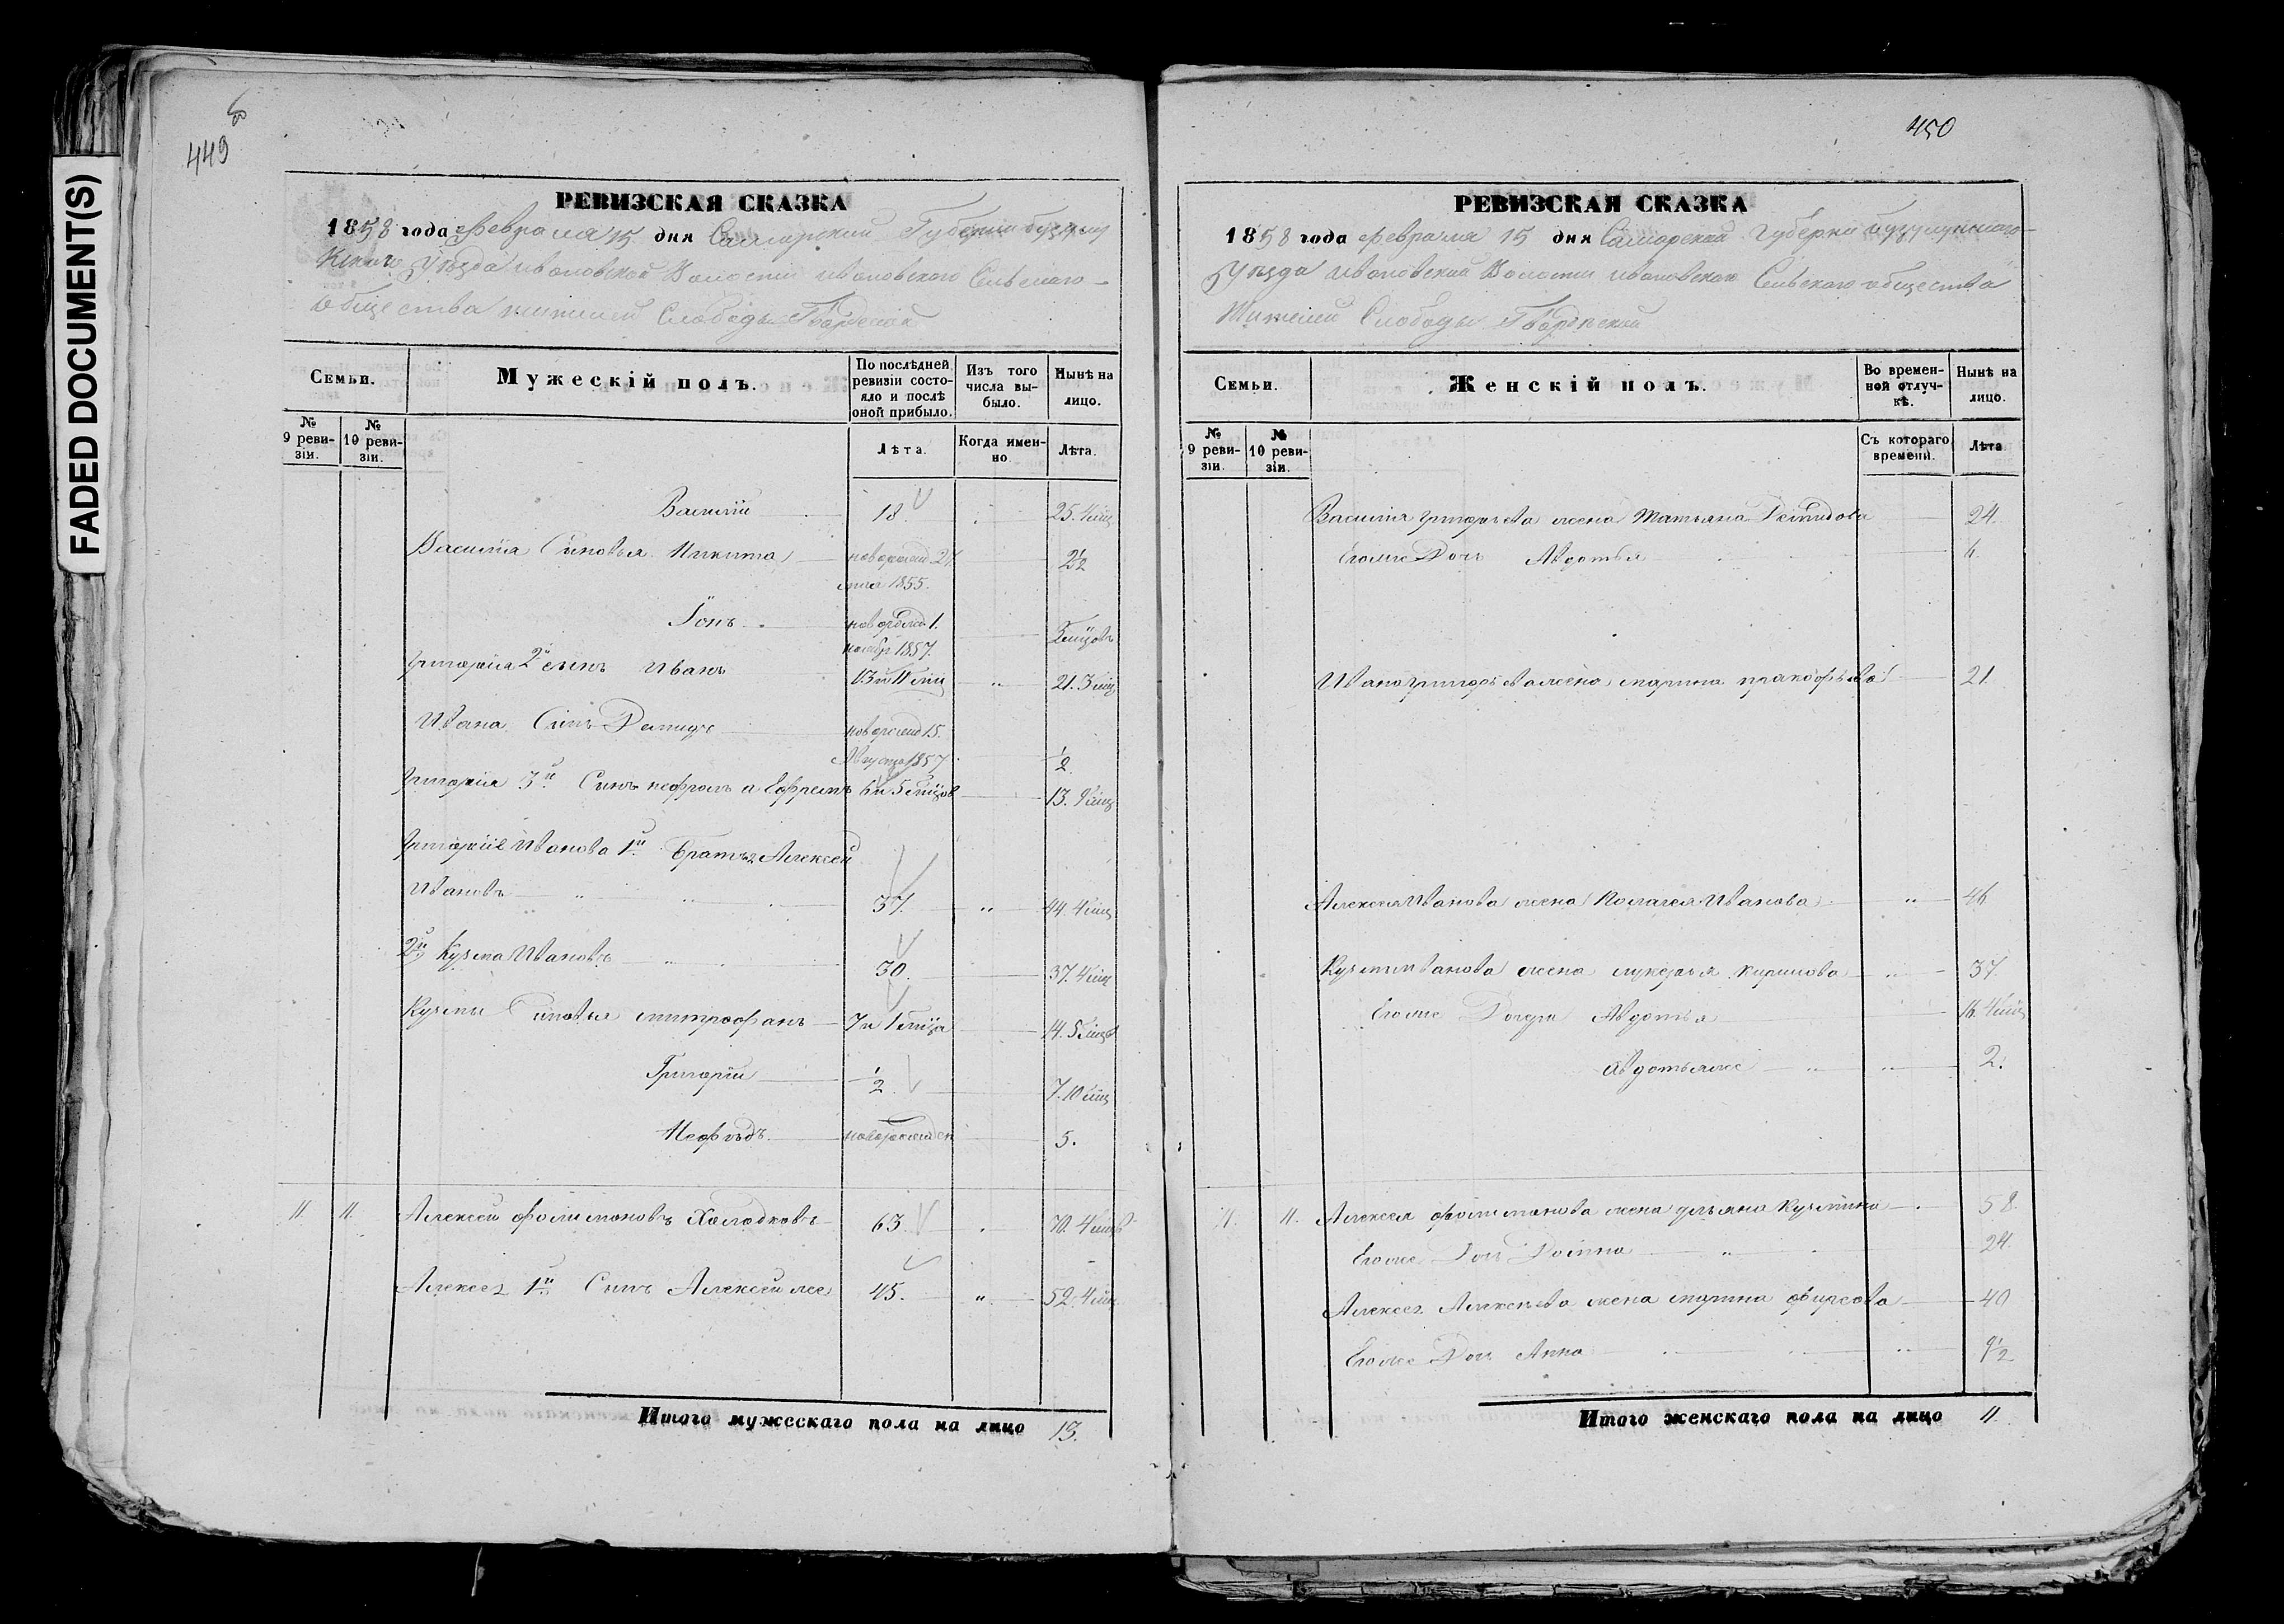 FADED DOCUMENT(S)
449
РЕВИЗСКАЯ СКАЗКА
1858 года февраля 15 дня Самарской Губернии Бузулу
кскаго Уѣзда ивановской Волости ивановскаго Сельскаго
общества жителей Слободы
Семьи.
Мужескій полъ.
По послѣдней ревизіи состояло и послѣ оной прибыло.
Изъ того числа выбыло.
Нынѣ на лицо.
№ 9 ревизіи.
№ 10 ревизіи.
Лѣта.
Когда именно
Лѣта.
Василій 18 25. 4 мѣц
Василія Сыновья Никита новорожд 27 2½
мая 1855.
Іонъ новорожд. 1. мцовъ
ноябр 1857.
Григорія 2й сынъ Иванъ 13 и 11 мц " 21. 3 мц
Ивана Сынъ Демидъ новорожд 15.
Августа 1857 ½
Григорія 3й Сынъ Ефремъ 6 и 5 мцов 13. 9 мц
Григорія Иванова 1й братъ Алексей
Ивановъ 37. " 44. 4 мц
2й Кузма Ивановъ 30. 37. 4 мц
Кузмы Сыновья митрофанъ 7 и 1 мца 14. 5 мцв
Григорій ½ 7. 10 мц
Нефодъ новорожден 5.
11. 11. Алексей Холодковъ 63. 70. 4 мцв
Алексея 1й Сынъ Алексей же 45. " 52. 4 мц
Итого мужескаго пола на лицо 13.
450
РЕВИЗСКАЯ СКАЗКА
1858 года февраля 15 дня Самарской Губерни Бузулукскаго
Уѣзда ивановской Волости ивановскаго Сельскаго общества
Жителей Слободы
Семьи.
Женскій полъ.
Во временной отлучкѣ.
Нынѣ на лицо.
№ 9 ревизіи.
№ 10 ревизіи.
Съ котораго времени.
Лѣта
Василія григорьева жена Татьяна Демидова 24.
Егоже Дочь Авдотья
Ивана григорьева жена марина пракофьева 21.
Алексея Иванова жена Полагея Иванова " 46
Кузмы иванова жена лукерья кирилова " 37.
Егоже Дочери Авдотья 16. 4 мц
авдотья же " " 2.
11. 11. Алексея жена ульяна Кузмина 58.
Егоже Дочь Домна " 24.
Алексея Алексѣева жена марина фирсова 40
Егоже Дочь Анна " 9½
Итого женскаго пола на лицо 11.